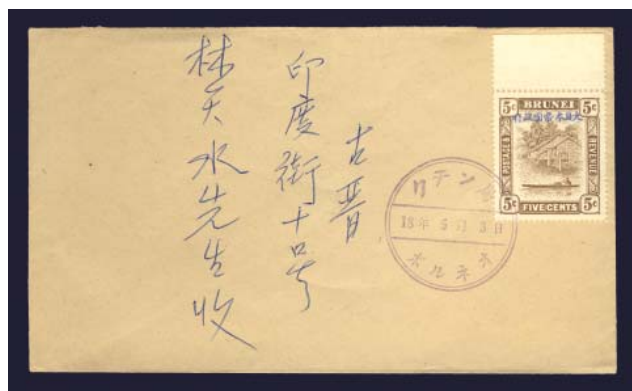 古晋
印度街十号
林天水先生收
5c BRUNEI 5c
POSTAGE
REVENUE
5c FIVE CENTS 5c
18年5月3日